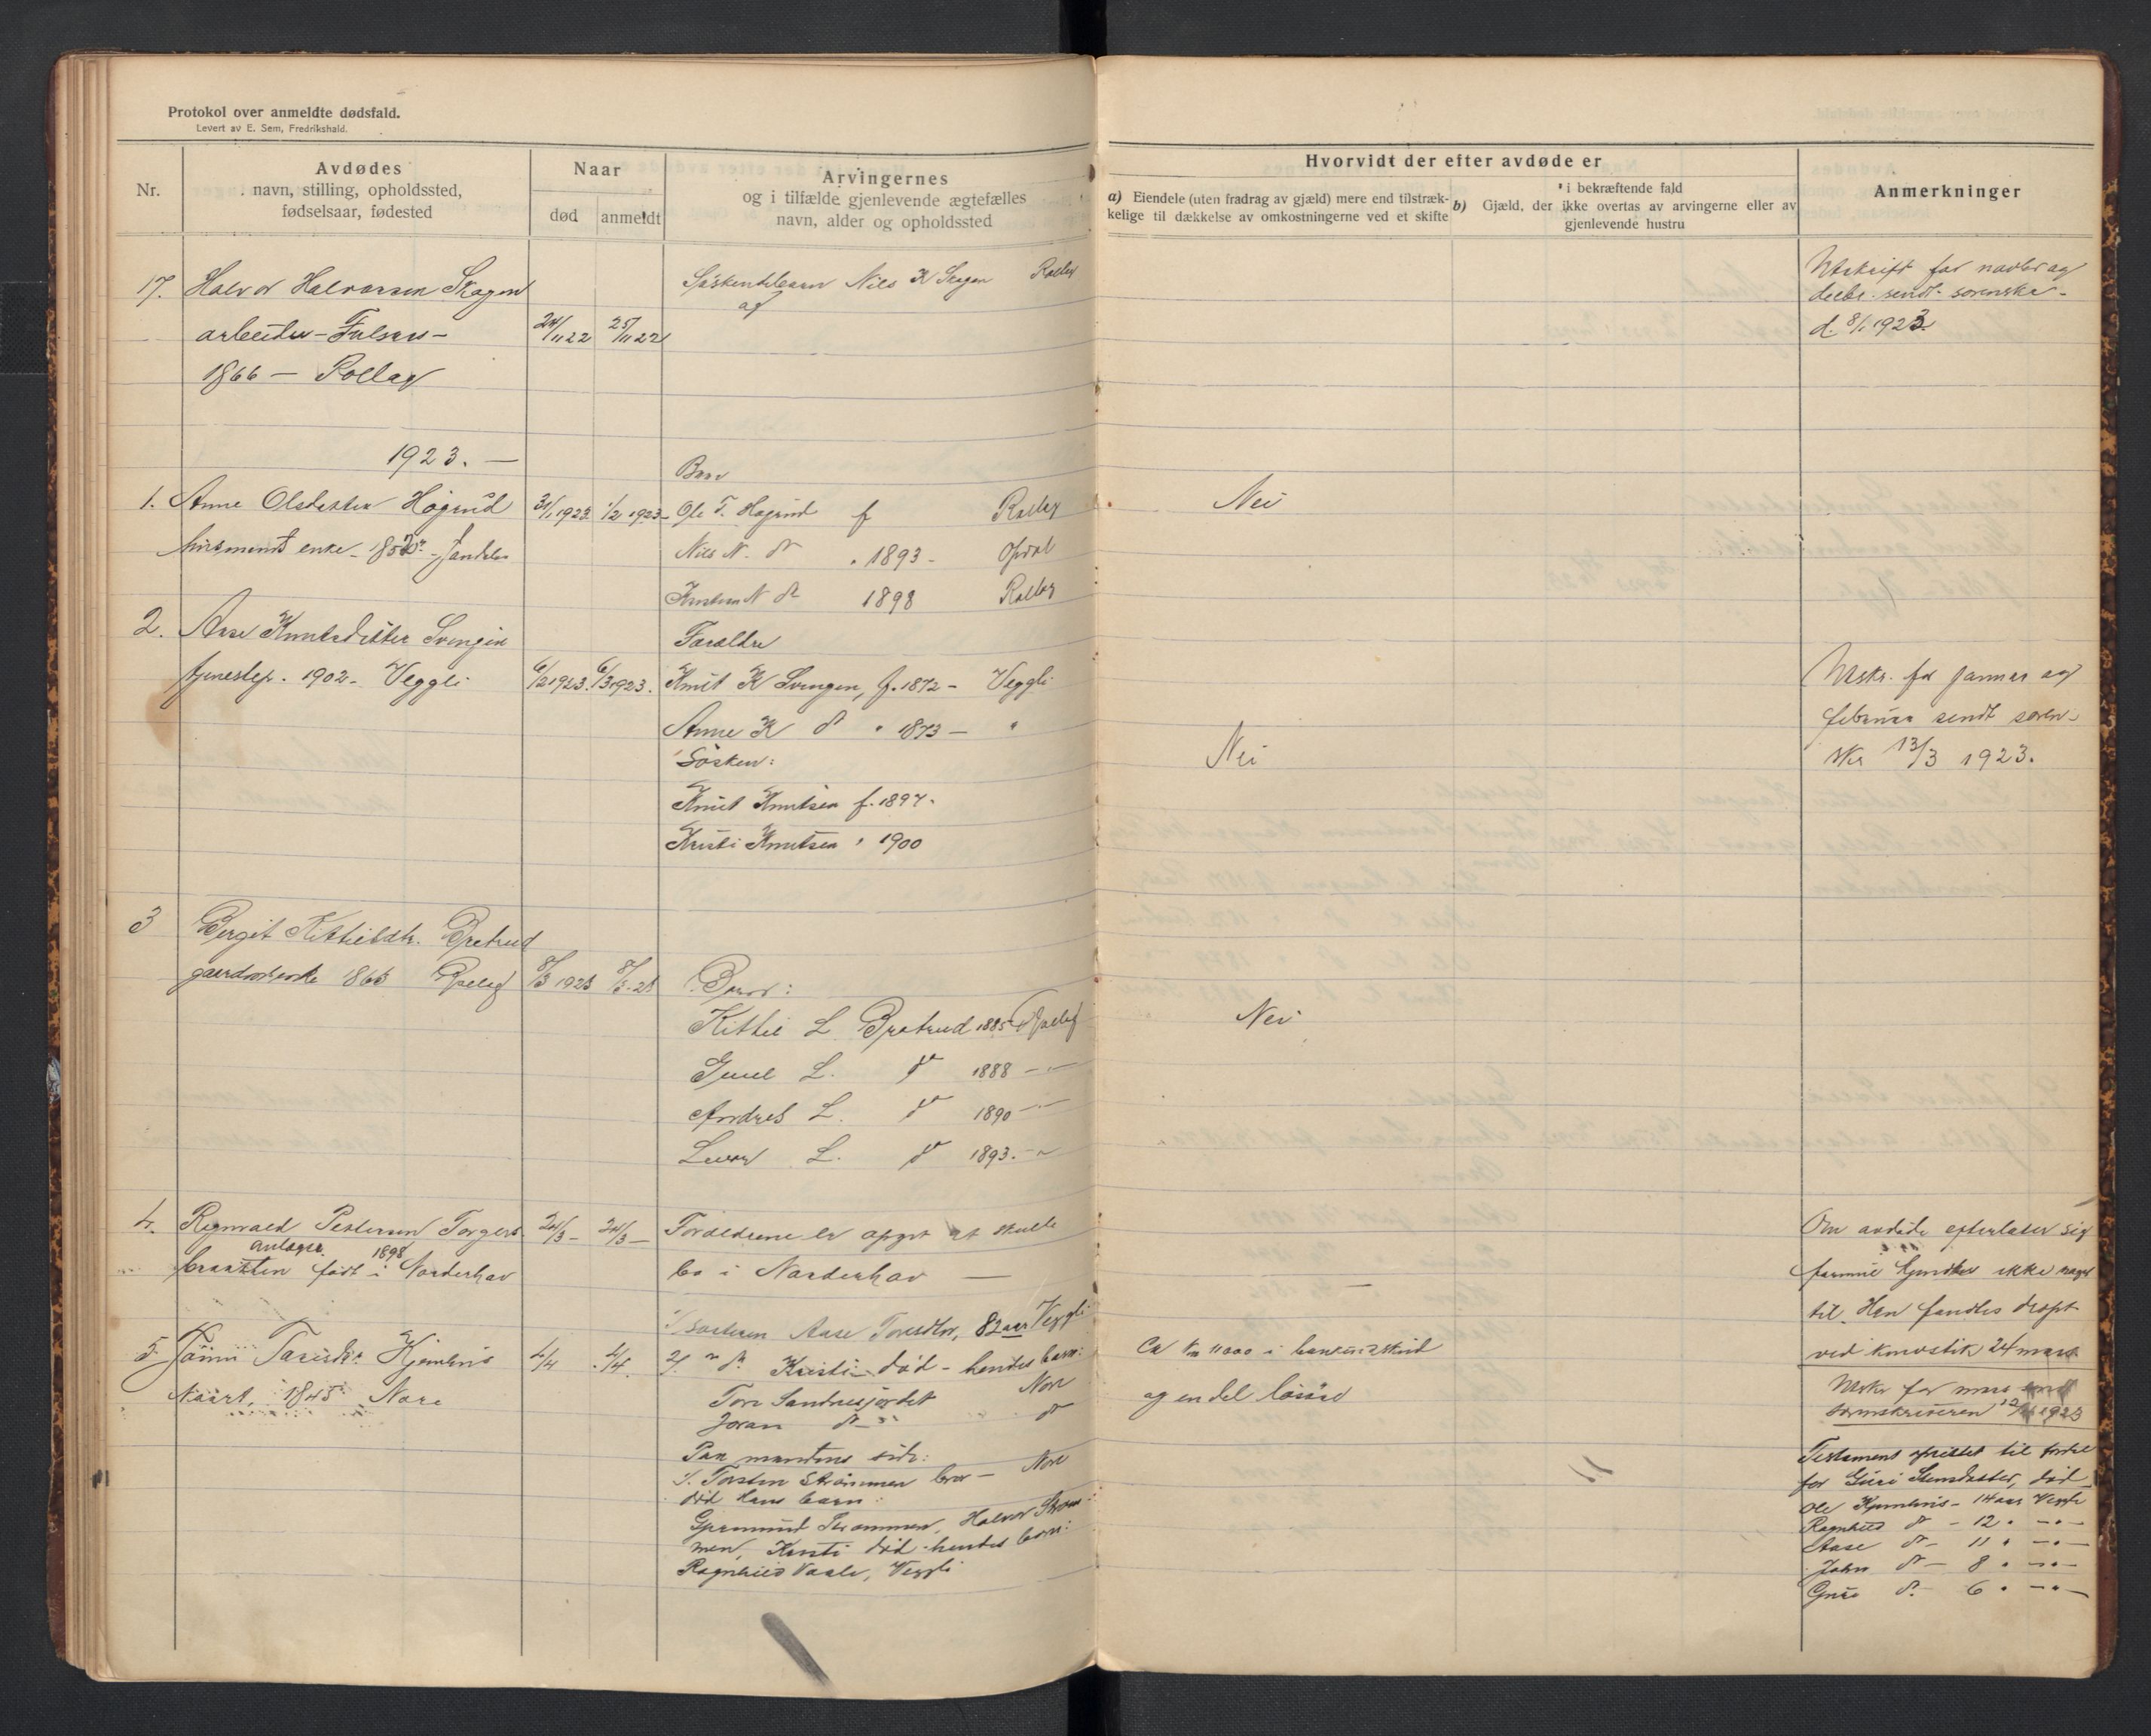 Protokol over anmeldte dødsfald.
Levert av E. Sem, Fredrikshald.
Nr.
Avdødes
navn, stilling, opholdssted,
fødselsaar, fødested
Naar
død
anmeldt
Arvingernes
og i tilfælde gjenlevende ægtefælles
navn, alder og opholdssted
Hvorvidt der efter avdøde er
a) Eiendele (uten fradrag av gjæld) mere end tilstræk-
kelige til dækkelse av omkostningerne ved et skifte
i bekræftende fald
b) Gjæld, der ikke overtas av arvingerne eller av
gjenlevende hustru
Anmerkninger
17. Halvor Halvorsen Skagen
arbeider - 24/11 22 25/11 22
1866 — Rollag
Söskendebarn Nils K Skagen Rollag
af
Utskrift for novbr og
decbr. sendt sorenskr.
d. 8/1 1923.
1923. —
1. Anne Olsdatter Høgrud 31/1 1923 1/2 1923
husmands enke - 1852
Barn
Ole T. Høgrud f Rollag
Nils N. do " 1893 - Opdal
N do 1898 Rollag
Nei
2. Aase Knutsdatter Svingen
tjenestep. 1902 - Veggli 6/2 1923. 6/3 1923.
Forældre
Knut K Svingen, f. 1872 - Veggli
Anne K do " 1873 — "
Søsken:
Knut Knutsen f. 1897.
Kristi Knutsen " 1900
Nei
Utskr. for januar og
februar sendt soren-
skr 13/3 1923.
3 Bergit Kittilsdtr. Bretrud
gaardmands enke 1863 Rollag 8/3 1923 8/3 - 23
Barn:
Kittil L Bretrud 1885 Rollag
Gunil L. do 1888 - " -
Andres L. do 1890 - " -
L. do 1893. - "
Nei
4. Regnvald Pettersen Torgers- 24/3 - 24/3 —
antagen 1898
braatten født i Norderhov
Forældrene er opgit at skulle
bo i Norderhov —
—
Om avdøde efterlater sig
formue kjendtes ikke noget
til. Han fandtes dræpt
ved 24 mars
5. Tønni Toresdtr. Kjemhus 4/4 4/4.
1845 Nore
1/ søsteren Aase Toresdtr, 82 aar Veggli
2/. " do Kristi død - hendes barn:
Tore Sandnesjordet Nore
Joran do - do
Paa mandens side:
1. Torsten Strømmen bror - Nore
død Hans barn:
Strømmen, Halvor Strøm-
men, Kristi død hendes barn:
Ragnhild Vaale, Veggli
Ca kr 11000 i bankinnskud
og en del løsøre
Utskr for mars sendt
sorenskriveren 1923
Testament oprettet til fordel
for død
Ole Kjemhus - 14 aar Veggli
Ragnhild do - 12 " - " -
Aase do - 11 " - " -
John do - 8 " - " -
do - 6 " - " -